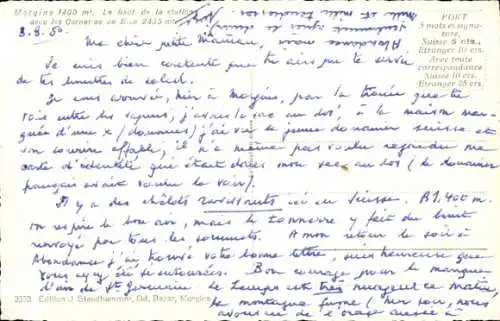 Morgins 1400 mt. Le haut de la station
avec les Cornettes de Bise 2435 mt.
3.8.50.
PORT
5 mots et signature,
Suisse 5 cts.,
Etranger 10 cts.
Avec toute
correspondance
Suisse 10 cts.
Etranger 25 cts.
Ma chère petite Maman,
Je suis bien contente que tu aies pu te servir
de tes lunettes de soleil.
Je suis arrivée, hier à Morgins, par la trouée que tu
vois entre les sapins, j'avais le sac au dos, à la maison marquée
d'une x (douanes) j'ai vu le jeune douanier suisse et
son sourire affable, il n'a même pas voulu regarder ma
carte d'identité qui était dans mon sac au dos (le douanier
français avait voulu la voir).
Il y a des châlets ravissants ici en Suisse. A 1.400 m.
on respire le bon air, mais le tonnerre y fait du bruit
renvoyé par tous les sommets. A mon retour le soir à
Abondance j'ai trouvé votre bonne lettre, suis heureuse que
vous ayez été si entourées. Bon courage pour le manque
d'air de St. Germain. Le temps est très nuageux ce matin,
la montagne fume (hier soir, nous
avons eu de l'orage
3332 Edition J. Stauthammer, Od. Bazar, Morgins